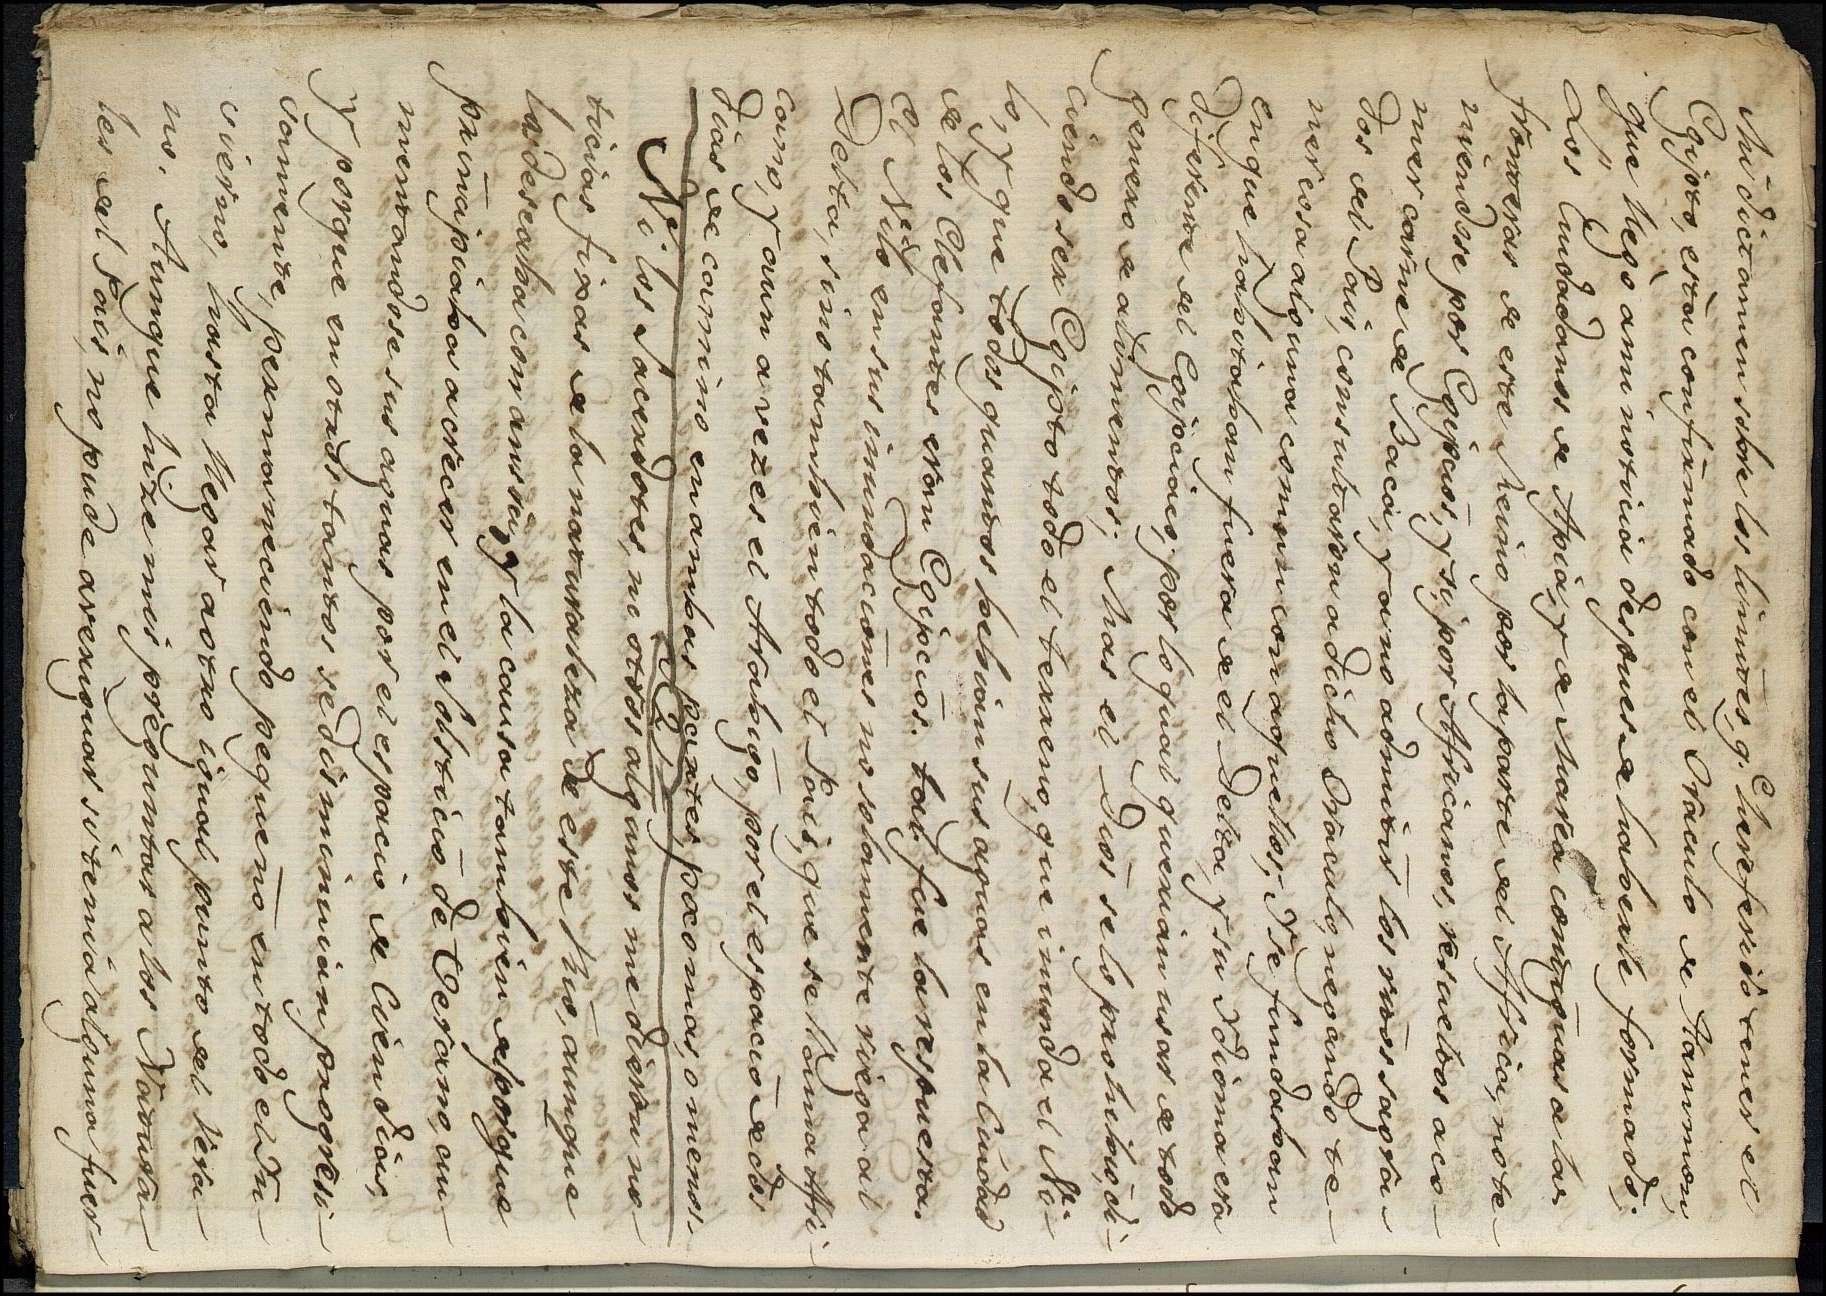 Mi dictamen sobre los limites, q. he referido tener el
Egipto, està confirmado con el Oraculo de Hammon,
que llegò a mi noticia despues de haberle formado;
Los Ciudadanos de Apia, y de Marea contiguas a las
fronteras de este Reino por la parte del Africa, no te-
niendose por Egipcios, y si, por Africanos, resueltos a co-
mer carne de Baca, y a no admitir los ritos sagra-
dos del Pais, consultaron a dicho Oraculo, negando te-
ner cosa alguna comun con aquellos; Y se fundaban
en que habitaban fuera de el Delta, y su Ydioma era
diferente del Egipciaco; por lo qual querian usar de todo
genero de alimentos; Mas el Dios se lo prohibiò, di-
ciendo ser Egipto todo el terreno, que inunda el Ni-
lo, y que todos quantos bebian sus aguas en la Ciudad
de los Elefantes eran Egipcios. tal fue la respuesta.
El Nilo en sus inundaciones no solamente riega al
Delta, sino tambien todo el Pais, que se llama Afri-
cano, y aun a vezes el Arabigo, por el espacio de dos
dias de camino en ambas partes, poco mas, o menos.
Ni los Sacerdotes, ni otros algunos me dieron no-
ticias fixas de la naturaleza de este Rio, aunque
la deseaba con ansia, y la causa tambien de porque
principiaba a crecer en el Solsticio de Verano, au-
mentandose sus aguas por el espacio de Cien dias,
y porque en otros tantos se disminuian progresi-
vamente, permaneciendo pequeño en todo el In-
vierno, hasta llegar a otro igual punto del Vera-
no. Aunque hize mis preguntas a los Natura-
les del Pais, no pude averiguar si tenia alguna fuer-